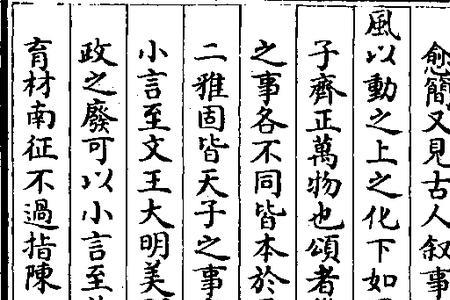 愈簡又見古人叙事
風以動之上之化下如
子齊正萬物也頌者
之事各不同皆本於
二雅固皆天子之事
小言至文王大明美
政之廢可以小言至
育材南征不過指陳